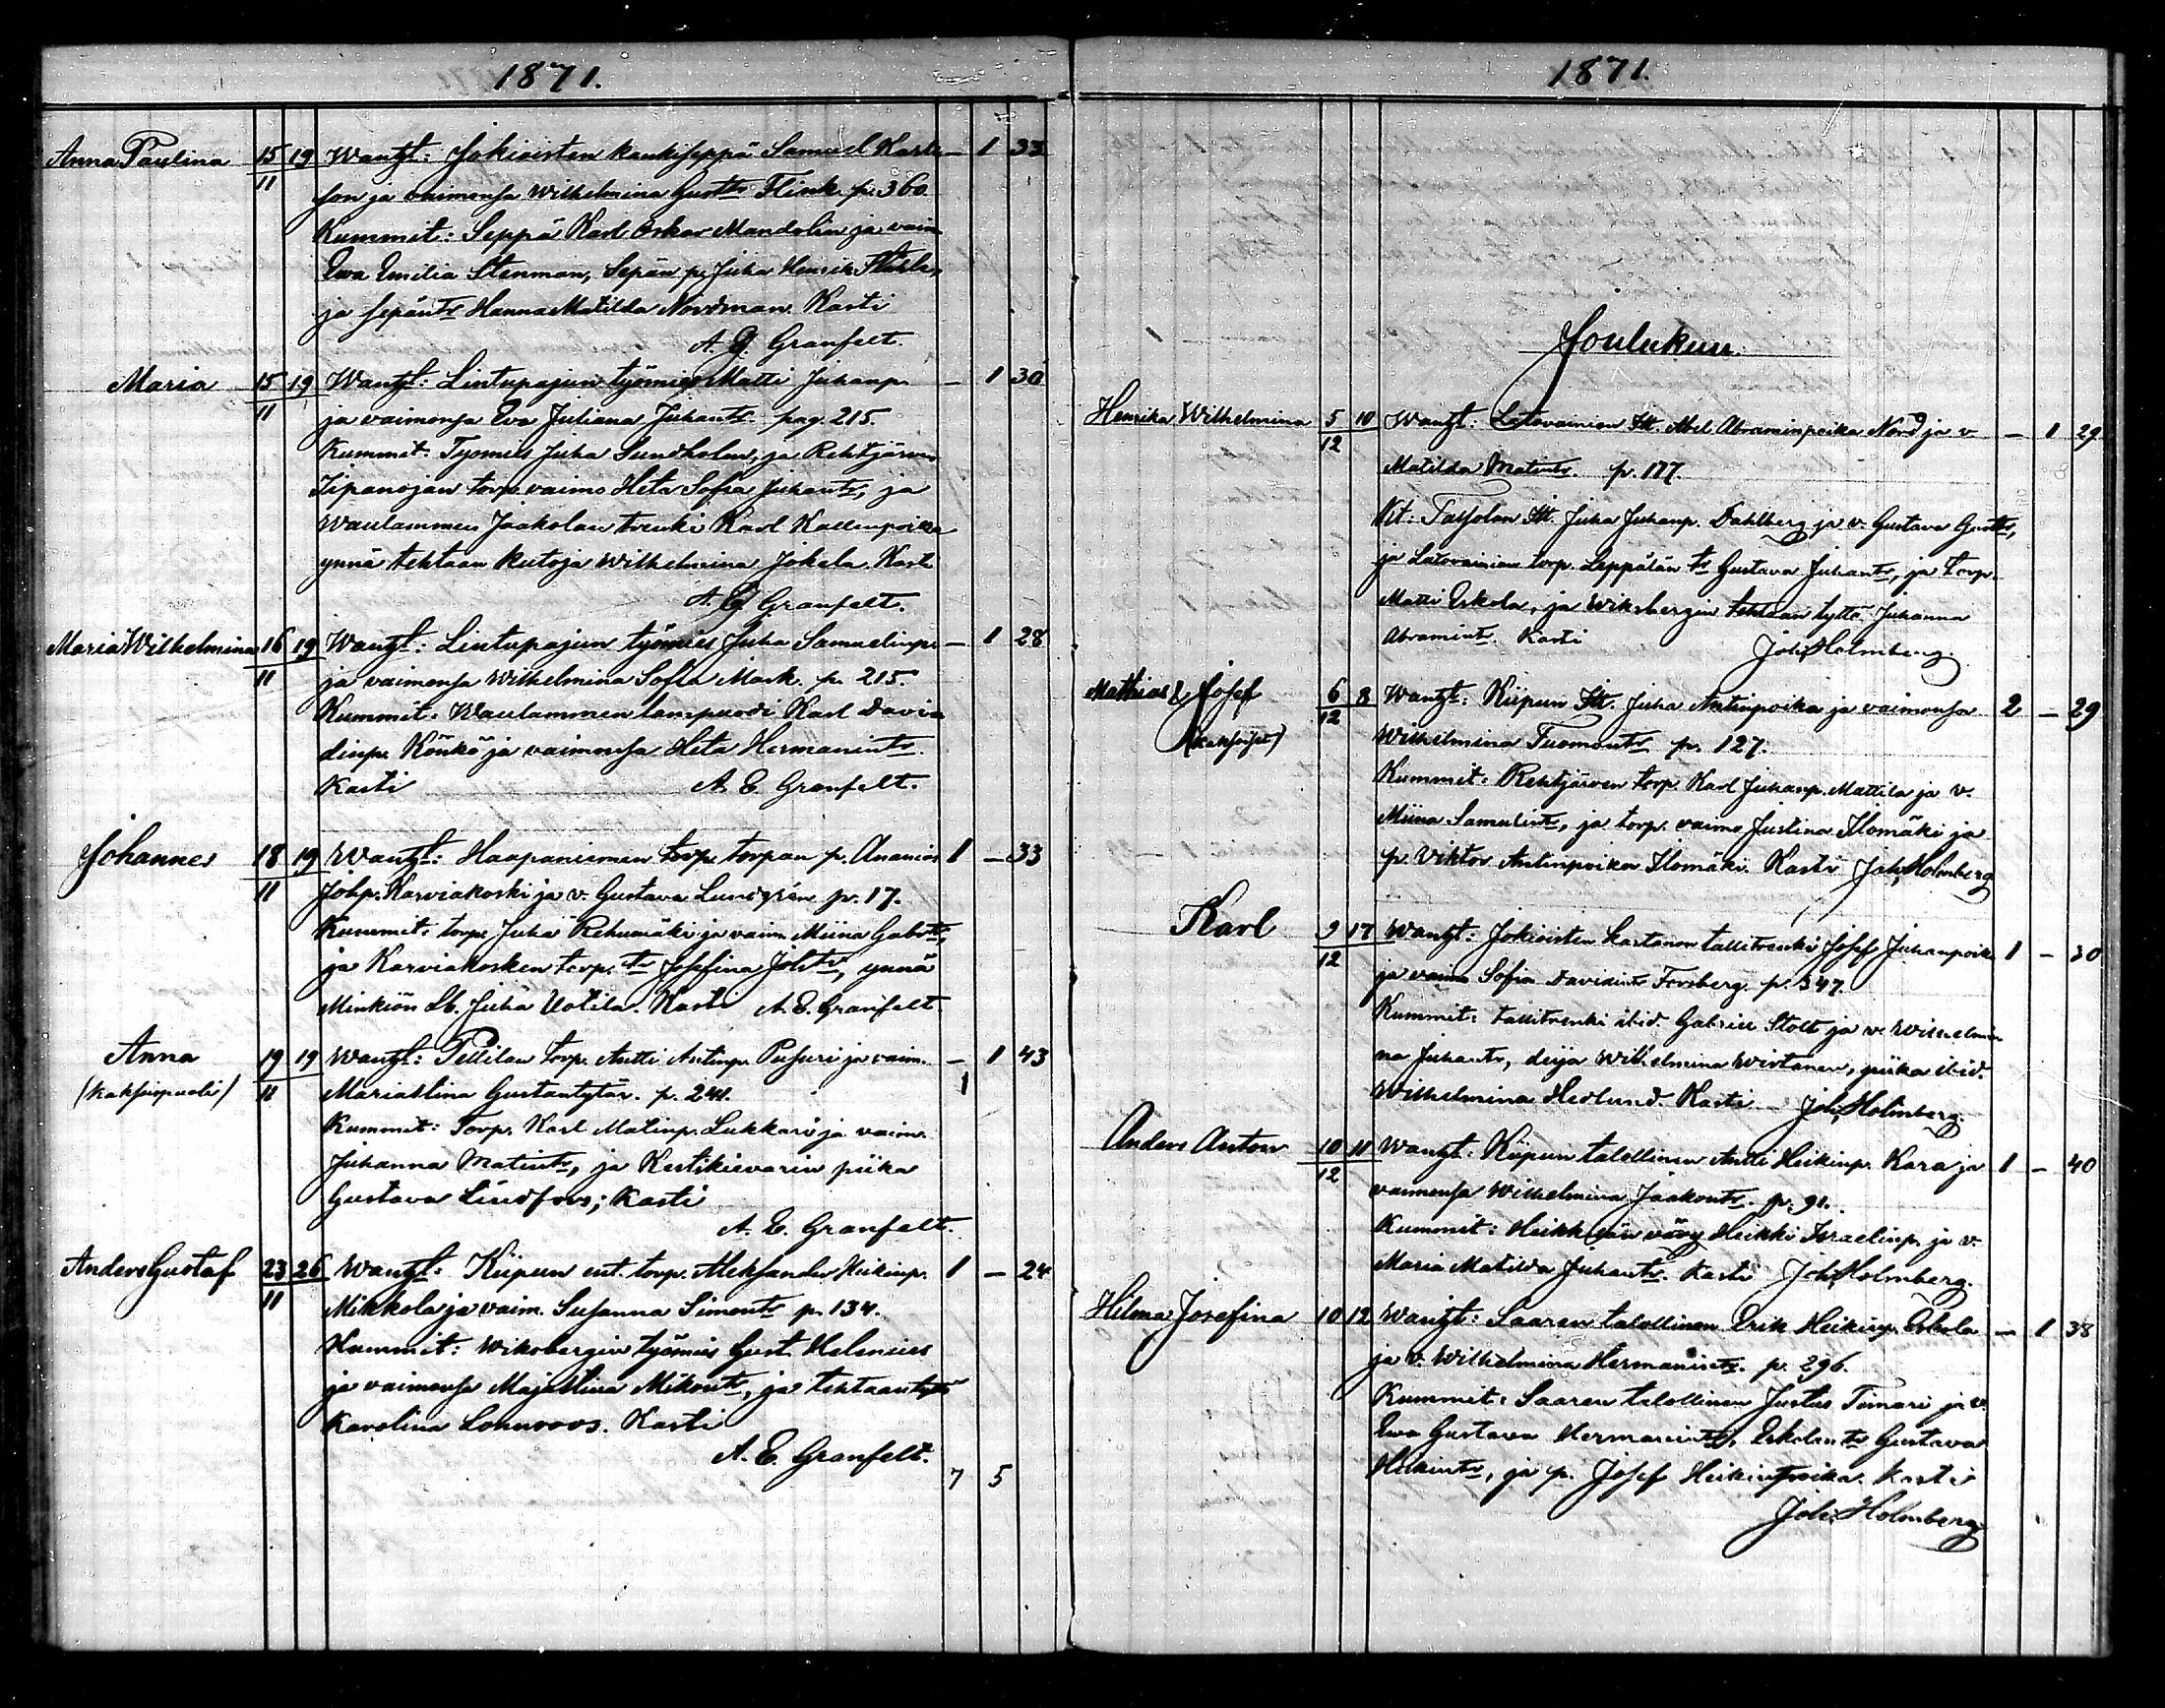 1871.
Anna Paulina 15/11 19 Wanht: Jokioisten kankiseppä Samuel Karls- – 1 33
son ja vaimonsa Wilhelmina Gustts Flink p. 360.
Kummit: Seppä Karl Oskar Mandolin ja vaim
Ewa Emilia Stenman, Sepän p. Juha Henrik
ja sepänts Hanna Matilda Nordman. Kasti
A. E. Granfelt.
Maria 15/11 19 Wanht: Lintupajun työmies Matti Juhanp. – 1 30
ja vaimonsa Eva Juliana Juhants. pag. 215.
Kummit. Työmies Juha Sundholm, ja Rehtijärven
torp. vaimo Heta Sofia Juhants, ja
Waulammen Jaakolan trenki Karl Kallenpoika
ynnä tehtaan kutoja Wilhelmina Jokela. Kasti
A. E. Granfelt.
Maria Wilhelmina 16/11 19 Wanht: Lintupajun työmies Juha Samuelinp. – 1 28
ja vaimonsa Wilhelmina Sofia Mark. p. 215.
Kummit: Waulammen lampuodi Karl Davi-
dinp. Könkö ja vaimonsa Heta Hermanints.
Kasti A. E. Granfelt.
Johannes 18/11 19 Wanht: Haapaniemen torp. torpan p. Ananias 1 – 33
Johp. Karviakoski ja v. Gustava Lundgrén p. 17.
Kummit: torp. Juha Rehumäki ja vaim. Miina Gabrts,
ja Karviakosken torp. ts Josefina Johts, ynnä
Minkiön Lb. Juha Uotila. Kasti A. E. Granfelt.
Anna 19/11 19 Wanht: Pellilan torp. Antti Antinp. Pusuri ja vaim. – 1 43
(kaksospuoli) Mariastina Gustantytär. p. 241. 1
Kummit: Torp. Karl Matinp. Lukkari ja vaim.
Juhanna Matints, ja Kestikievarin piika
Gustava Lindfors; Kasti
A. E. Granfelt.
Anders Gustaf 23/11 26 Wanht: Kiipun ent. torp. Aleksander Heikinp. 1 – 24
Mikkola ja vaim. Susanna Simonts p. 134.
Kummit: Wiksbergin työmies Gust. Helenius
ja vaimonsa Majastina Mikonts, ja tehtaantyttö
Karolina Lonnroos. Kasti
A. E. Granfelt.
7 5
1871.
Joulukuu.
Henrika Wilhelmina 5/12 10 Wanht: Latovainion Itt. Abel Abraminpoika Nord ja v. – 1 29
Matilda Matints. p. 177.
Kit: Itt. Juha Juhanp. Dahlberg ja v. Gustava Gustts,
ja Latovainion torp. Leppälän ts Gustava Juhants, ja torp.
Matti Eskola, ja Wiksbergin tehtaan tyttö Juhanna
Abramints. Kasti Joh. Holmberg.
Mathias & Josef 6/12 8 Wanht: Kiipun Itt. Juha Antinpoika ja vaimonsa 2 – 29
(kaksoiset) Wilhelmina Tuomonts. p. 127.
Kummit: Rehtijärven torp. Karl Juhanp. Mattila ja v.
Miina Samulints, ja torp. vaimo Justina Ilomäki ja
p. Viktor Antinpoika Ilomäki. Kasti Joh. Holmberg
Karl 9/12 17 Wanht: Jokioisten kartanon tallitrenki Josef Juhanpoika 1 – 30
ja vaimo Sofia Davidints Forsberg. p. 347.
Kummit: tallitrenki ibid. Gabriel Stolt ja v. Wilhelmi-
na Juhants, deija Wilhelmina Wirtanen, piika ibid.
Wilhelmina Hedlund. Kasti Joh. Holmberg.
Anders Anton 10/12 11 Wanht: Kiipun talollinen Antti Heikinp. Kara ja 1 – 40
vaimonsa Wilhelmina Jaakonts. p. 91.
Kummit: Heikkilän Heikki Israelinp. ja v.
Maria Matilda Juhants. Kasti Joh. Holmberg.
Hilma Josefina 10 12 Wanht: Saaren talollinen Erik Heikinp. Eskola – 1 38
ja v. Wilhelmina Hermanints. p. 296.
Kummit: Saaren talollinen Justus Timari ja v.
Ewa Gustava Hermanints, Eskolan ts Gustava
Heikints, ja p. Josef Heikinpoika. Kasti
Joh. Holmberg